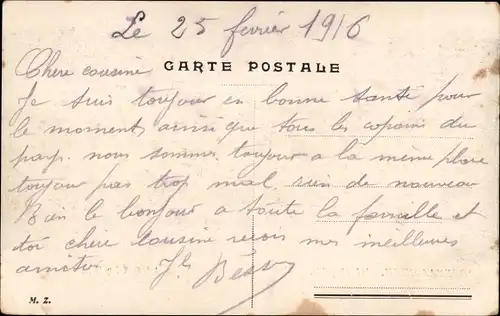 Le 25 fevrier 1916
Chere cousine
CARTE POSTALE
Je suis toujour en bonne santé pour
le moment ainsi que tous les copains du
pays. nous sommes toujour a la même place
toujour pas trop mal rien de nouveau
Bien le bonjour a toute la famille et
toi chere cousine recois mes meilleures
amities
M. Z.